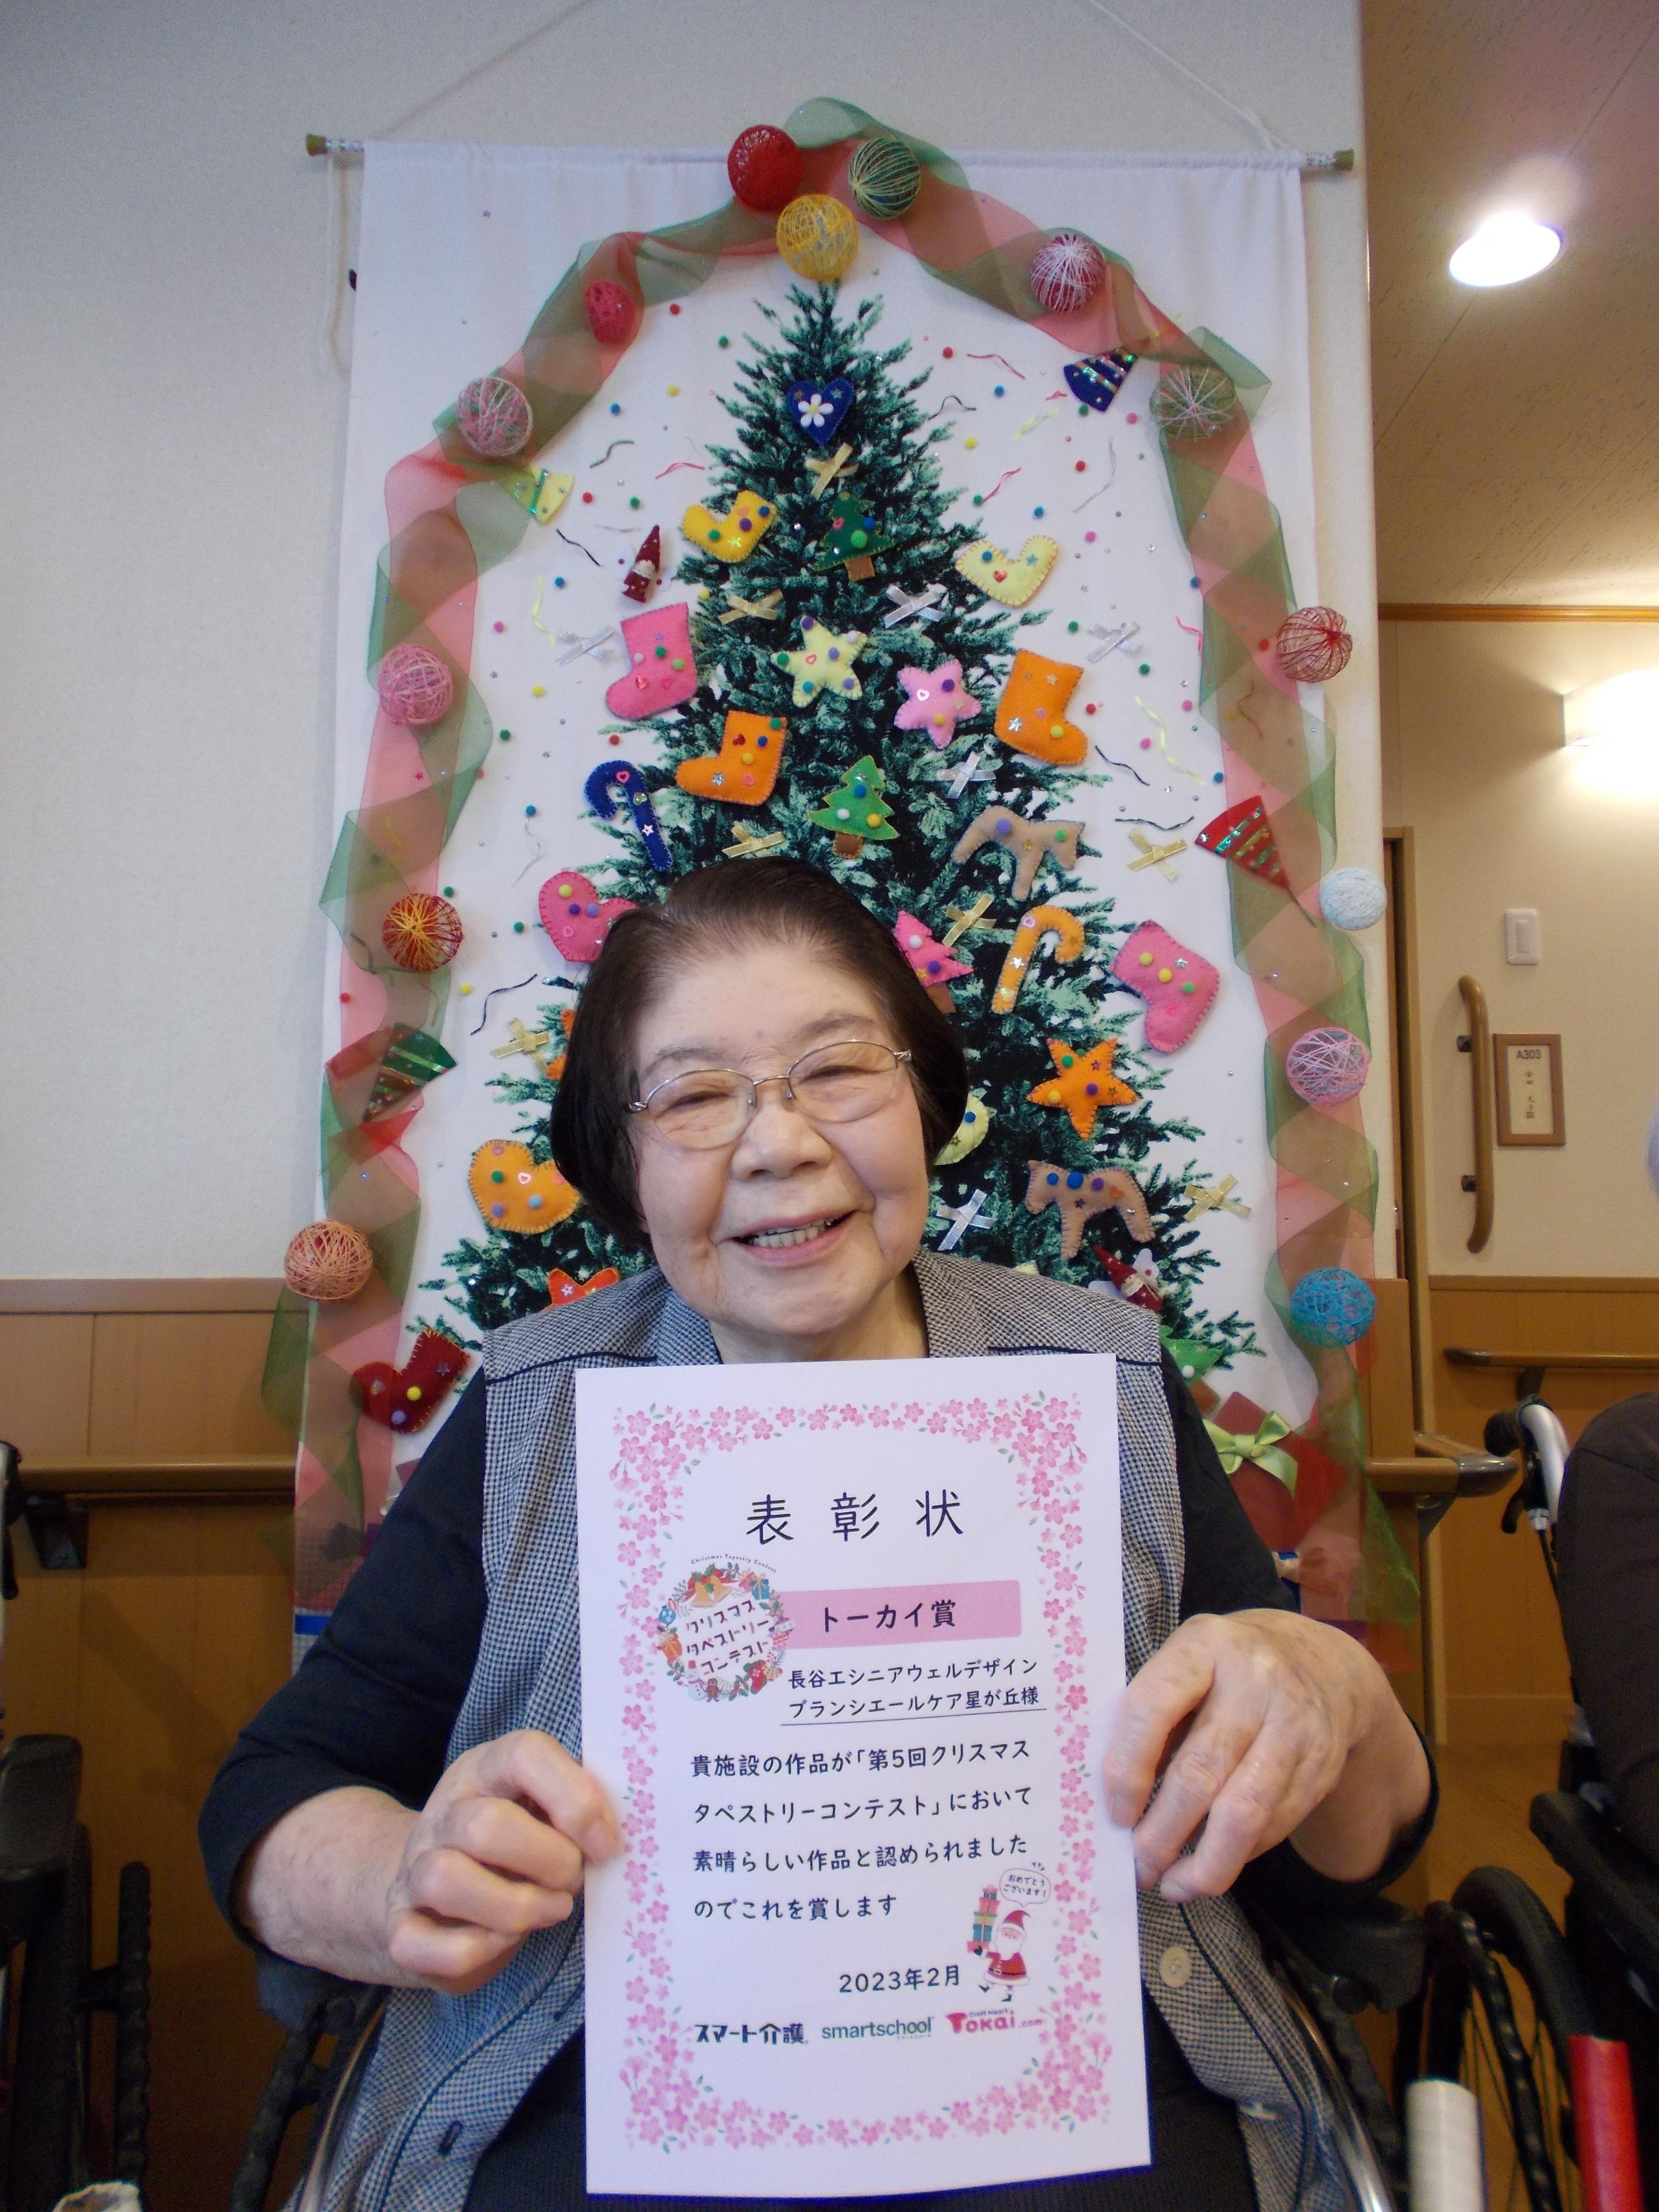 A303
表彰状
Christmas Tapestry Contest
クリスマス
タペストリー
コンテスト
トーカイ賞
長谷エシニアウェルデザイン
ブランシエールケア星が丘様
貴施設の作品が「第5回クリスマス
タペストリーコンテスト」において
素晴らしい作品と認められました
のでこれを賞します
おめでとう
ございます!
2023年2月
スマート介護 smartschool Craft Heart Tokai.com